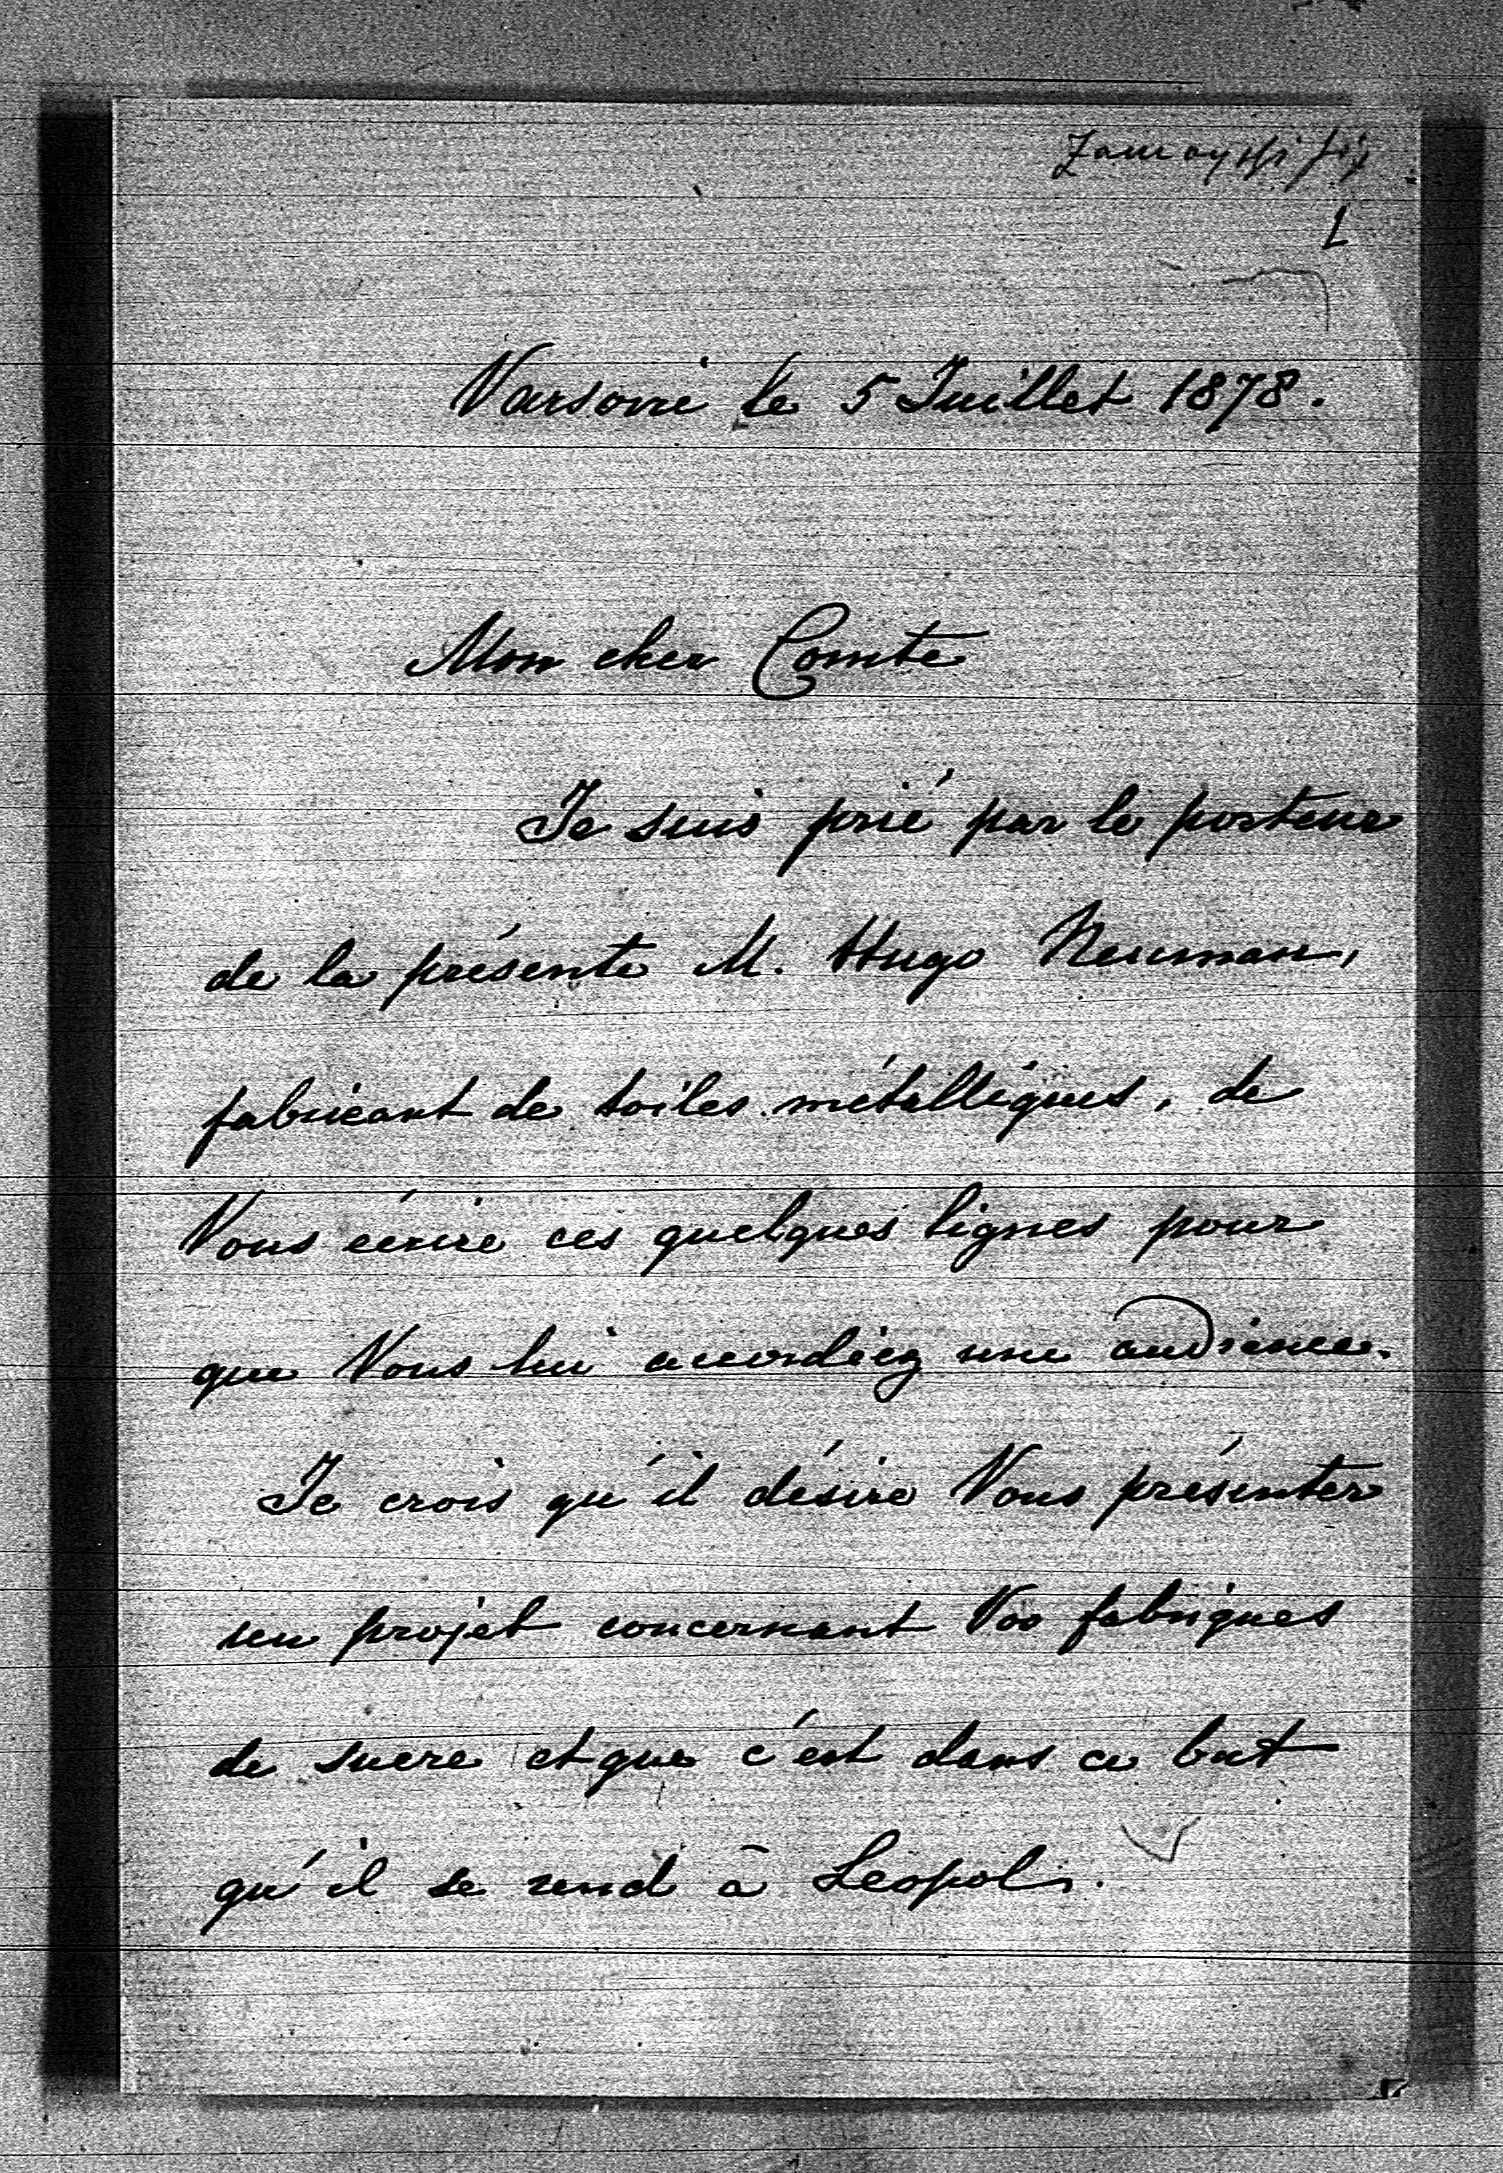 Zamoyski
1
Varsovie le 5 Juillet 1878.
Mon cher Comte
Je suis prié par le porteur
de la présente M. Hugo Neuman,
fabricant de toiles métalliques, de
Vous écrire ces quelques lignes pour
que Vous lui accordiez une audience.
Je crois qu'il désire Vous présenter
un projet concernant Vos fabriques
de sucre et que c'est dans ce but
qu'il se rend à Leopol.